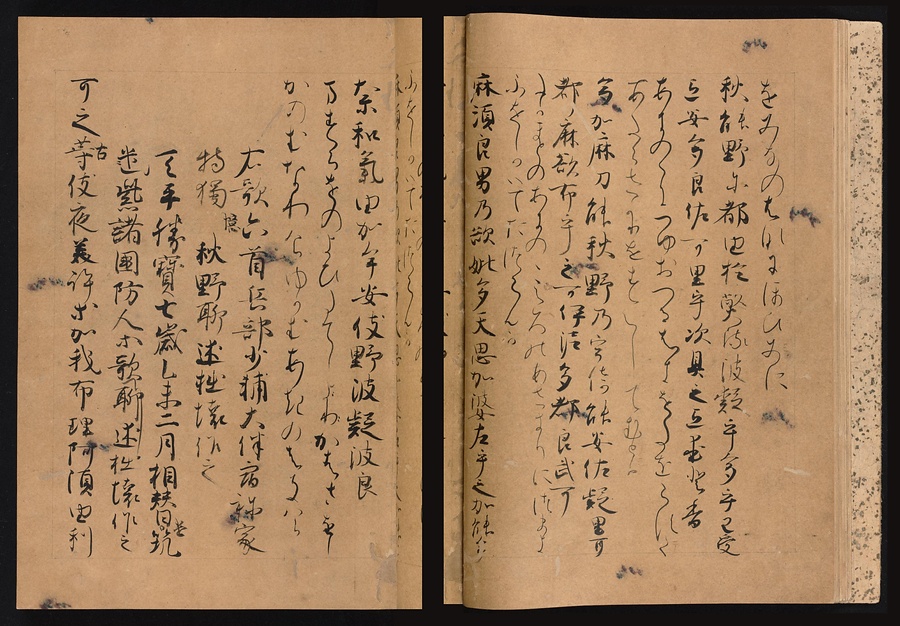 秋能野尓都由於弊流波疑乎多乎里受
弖安多良佐可里乎須具之弖牟登香
あきのゝにつゆおへるはきをたをらす
てあたらさかりをすくしてむとか
多可麻刀能秋野乃宇倍能安佐疑里尓
都麻欲布乎之可伊泥多都良武可
たかまとのあきのゝうへのあさきりにつまよ
ふをしかいてたつらんか
麻須良男乃欲妣多天思加婆左乎之加能牟
奈和氣由加牟安伎野波疑波良
ますらをのよひたてしかはさをし
かのむなわけゆかむあきのはきはら
右歌六首兵部少輔大伴宿祢家
持獨憶秋野聊述拙懐作之
天平勝寶七歳乙未二月相替遣筑
紫諸國防人等歌聊述拙懐作之
可之古等伎夜美許等加我布理阿須由利